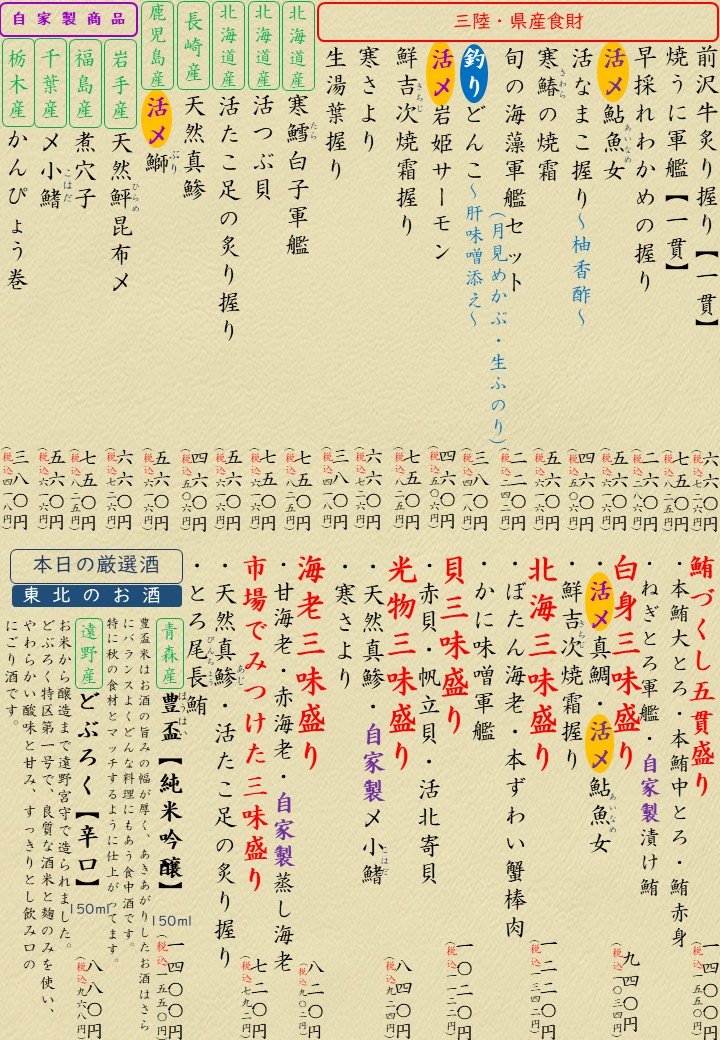 三陸・県産食財
前沢牛炙り握り【一貫】
六六〇円
(税込七二六円)
焼うに軍艦【一貫】
七五〇円
(税込八二五円)
早採れわかめの握り
二六〇円
(税込二八六円)
活〆鮎魚女
あいなめ
五六〇円
(税込六一六円)
活なまこ握り～柚香酢～
四六〇円
(税込五〇六円)
寒鰆の焼霜
さわら
五六〇円
(税込六一六円)
旬の海藻軍艦セット
(月見めかぶ・生ふのり)
二二〇円
(税込二四二円)
釣りどんこ～肝味噌添え～
三八〇円
(税込四一八円)
活〆岩姫サーモン
四六〇円
(税込五〇六円)
鮮吉次焼霜握り
きちじ
七五〇円
(税込八二五円)
寒さより
六六〇円
(税込七二六円)
生湯葉握り
三八〇円
(税込四一八円)
北海道産
寒鱈白子軍艦
たら
七五〇円
(税込八二五円)
北海道産
活つぶ貝
七五〇円
(税込八二五円)
北海道産
活たこ足の炙り握り
五六〇円
(税込六一六円)
長崎産
天然真鯵
四六〇円
(税込五〇六円)
鹿児島産
活〆鰤
ぶり
五六〇円
(税込六一六円)
自家製商品
岩手産
天然鮃昆布〆
ひらめ
六六〇円
(税込七二六円)
福島産
煮穴子
七五〇円
(税込八二五円)
千葉産
〆小鰭
こはだ
五六〇円
(税込六一六円)
栃木産
かんぴょう巻
三八〇円
(税込四一八円)
鮪づくし五貫盛り
一四〇〇円
(税込一五五〇円)
・本鮪大とろ・本鮪中とろ・鮪赤身
・ねぎとろ軍艦・自家製漬け鮪
白身三味盛り
九四〇円
(税込一〇三四円)
・活〆真鯛・活〆鮎魚女
あいなめ
・鮮吉次焼霜握り
きちじ
北海三味盛り
一二二〇円
(税込一三四二円)
・ぼたん海老・本ずわい蟹棒肉
・かに味噌軍艦
貝三味盛り
一〇二〇円
(税込一一二二円)
・赤貝・帆立貝・活北寄貝
光物三味盛り
八四〇円
(税込九二四円)
・天然真鯵・自家製〆小鰭
こはだ
・寒さより
海老三味盛り
八二〇円
(税込九〇二円)
・甘海老・赤海老・自家製蒸し海老
市場でみつけた三味盛り
七二〇円
(税込七九二円)
・天然真鯵・活たこ足の炙り握り
あじ
・とろ尾長鮪
びんちょう
本日の厳選酒
東北のお酒
青森産
豊盃【純米吟醸】
ほうはい
150ml
一四〇〇円
(税込一五五〇円)
豊盃米はお酒の旨みの幅が厚く、あきあがりしたお酒はさら
にバランスよくどんな料理にもあう食中酒です。
特に秋の食材とマッチするように仕上がってます。
遠野産
どぶろく【辛口】
150ml
八八〇円
(税込九六八円)
お米から醸造まで遠野宮守で造られました。
どぶろく特区第一号で、良質な酒米と麹のみを使い、
やわらかい酸味と甘み、すっきりとし飲み口の
にごり酒です。